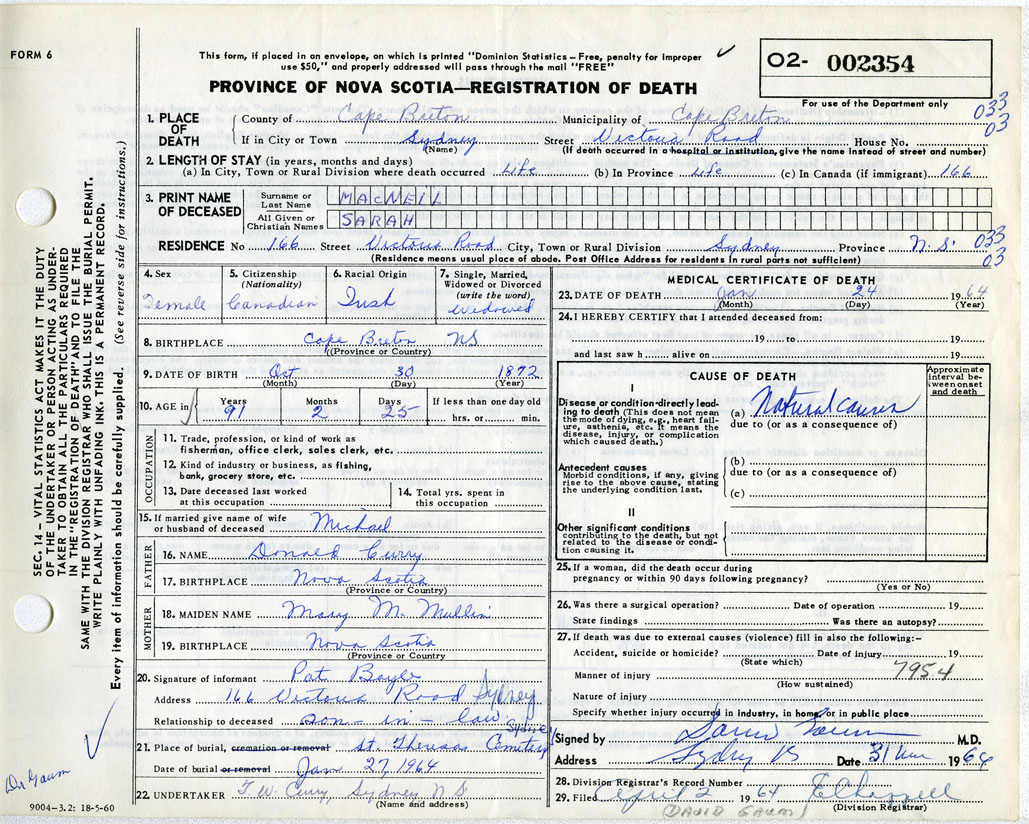 FORM 6
This form, if placed in an envelope, on which is printed "Dominion Statistics – Free, penalty for improper
use $50," and properly addressed will pass through the mail "FREE"
✓
O2- 002354
PROVINCE OF NOVA SCOTIA—REGISTRATION OF DEATH
For use of the Department only
033
03
1. PLACE OF DEATH
County of Cape Breton Municipality of Cape Breton
If in City or Town Sydney Street Victoria Road House No.
(Name) (If death occurred in a hospital or institution, give the name instead of street and number)
2. LENGTH OF STAY (in years, months and days)
(a) In City, Town or Rural Division where death occurred Life (b) In Province Life (c) In Canada (if immigrant) 166
3. PRINT NAME OF DECEASED
Surname or Last Name MACNEIL
All Given or Christian Names SARAH
RESIDENCE No 166 Street Victoria Road City, Town or Rural Division Sydney Province N.S. 033
03
(Residence means usual place of abode. Post Office Address for residents in rural parts not sufficient)
4. Sex Female
5. Citizenship (Nationality) Canadian
6. Racial Origin Irish
7. Single, Married, Widowed or Divorced (write the word) Widowed
8. BIRTHPLACE Cape Breton NS
(Province or Country)
9. DATE OF BIRTH Oct 30 1872
(Month) (Day) (Year)
10. AGE in Years 91 Months 2 Days 25 If less than one day old hrs. or min.
OCCUPATION
11. Trade, profession, or kind of work as
fisherman, office clerk, sales clerk, etc.
12. Kind of industry or business, as fishing,
bank, grocery store, etc.
13. Date deceased last worked at this occupation
14. Total yrs. spent in this occupation
15. If married give name of wife or husband of deceased Michael
FATHER
16. NAME Donald Curry
17. BIRTHPLACE Nova Scotia
(Province or Country)
MOTHER
18. MAIDEN NAME Mary M. Mullin
19. BIRTHPLACE Nova Scotia
(Province or Country
20. Signature of informant Pat Boyle
Address 166 Victoria Road Sydney
Relationship to deceased son-in-law
21. Place of burial, cremation or removal St. Theresas Cemetery Sydney
Date of burial or removal Jan 27, 1964
22. UNDERTAKER T. W. Curry, Sydney N.S
(Name and address)
MEDICAL CERTIFICATE OF DEATH
23. DATE OF DEATH Jan 24 1964
(Month) (Day) (Year)
24. I HEREBY CERTIFY that I attended deceased from:
19 to 19
and last saw h alive on 19
CAUSE OF DEATH
Approximate interval between onset and death
I
Disease or condition directly leading to death (This does not mean
the mode of dying, e.g., heart failure, asthenia, etc. It means the
disease, injury, or complication
which caused death.)
(a) Natural causes
due to (or as a consequence of)
Antecedent causes
Morbid conditions, if any, giving
rise to the above cause, stating
the underlying condition last.
(b)
due to (or as a consequence of)
(c)
II
Other significant conditions
contributing to the death, but not
related to the disease or condition causing it.
25. If a woman, did the death occur during
pregnancy or within 90 days following pregnancy?
(Yes or No)
26. Was there a surgical operation? Date of operation 19
State findings Was there an autopsy?
27. If death was due to external causes (violence) fill in also the following:–
Accident, suicide or homicide? Date of injury 19
(State which)
Manner of injury 7954
(How sustained)
Nature of injury
Specify whether injury occurred in industry, in home, or in public place
Signed by M.D.
Address Sydney NS Date 31 1964
28. Division Registrar's Record Number
29. Filed April 2 1964
(Division Registrar)
(DAVID GAUM)
SEC. 14 – VITAL STATISTICS ACT MAKES IT THE DUTY
OF THE UNDERTAKER OR PERSON ACTING AS UNDER-
TAKER TO OBTAIN ALL THE PARTICULARS REQUIRED
IN THE "REGISTRATION OF DEATH" AND TO FILE THE
SAME WITH THE DIVISION REGISTRAR WHO SHALL ISSUE THE BURIAL PERMIT.
WRITE PLAINLY WITH UNFADING INK. THIS IS A PERMANENT RECORD.
Every item of information should be carefully supplied. (See reverse side for instructions.)
Dr Gaum
9004–3.2: 18-5-60